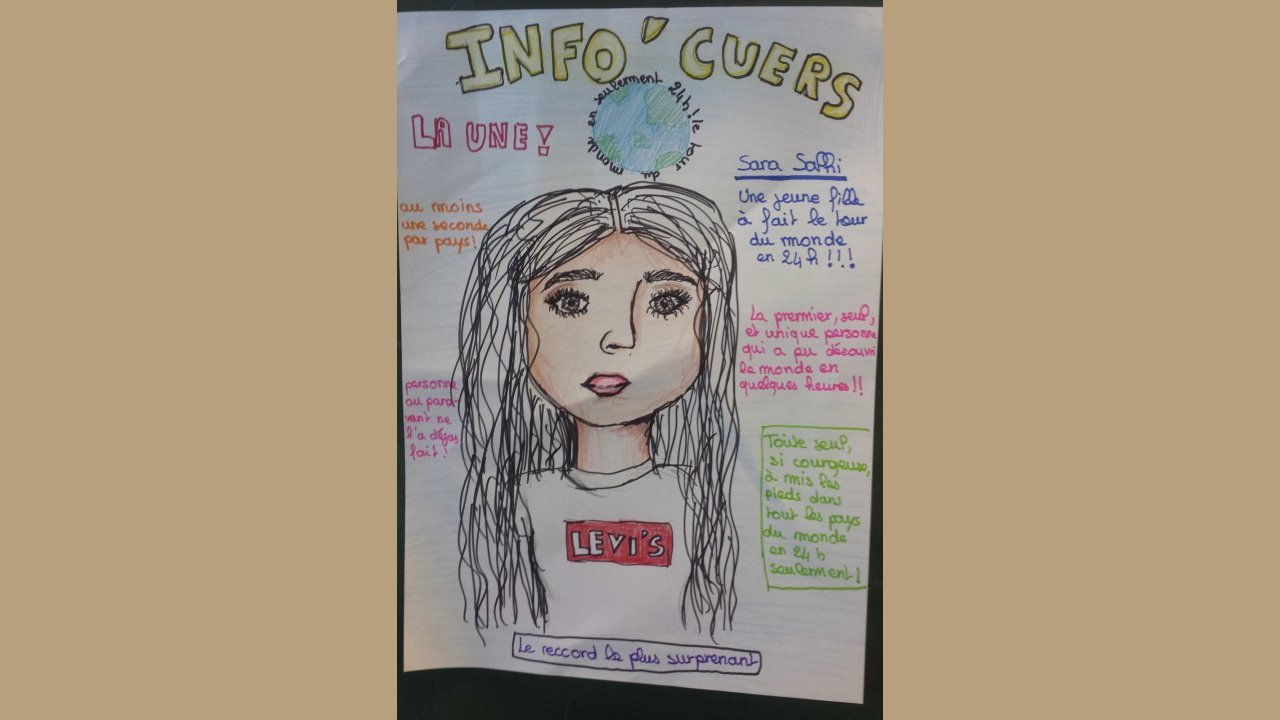 INFO'CUERS
le tour du monde en seulement 24h!
LA UNE!
Sara Saffi
Une jeune fille
à fait le tour
du monde
en 24h !!!
au moins
une seconde
par pays!
La premier, seul,
et unique personne
qui a pu découvri
le monde en
quelques heures!!
personne
au para-
vant ne
l'a déjas
fait!
Toute seul,
si courgeuse,
à mis les
pieds dans
tout les pays
du monde
en 24 h
seulement!
LEVI'S
Le reccord le plus surprenant